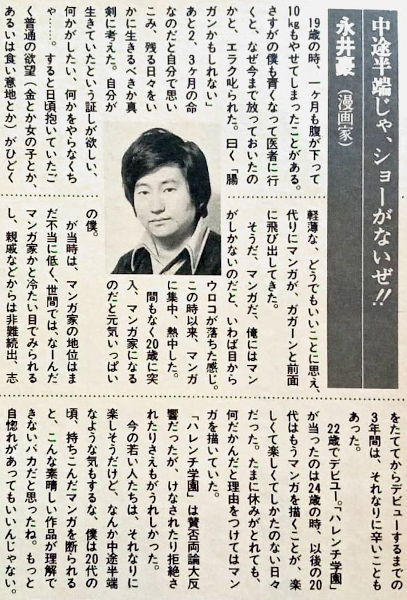 中途半端じゃ、ショーがないぜ!!
永井豪(漫画家)
19歳の時、一ヶ月も腹が下って
10kgもやせてしまったことがある。
さすがの僕も青くなって医者に行
くと、なぜ今まで放っておいたの
かと、エラク叱られた。曰く「腸
ガンかもしれない」
あと2、3ヶ月の命
なのだと自分で思い
こみ、残る日々をい
かに生きるべきか真
剣に考えた。自分が
生きていたという証しが欲しい、
何かがしたい、何かをやらなくち
ゃ……。すると日頃抱いていたご
く普通の欲望(金とか女の子とか、
あるいは食い意地とか)がひどく
軽薄な、どうでもいいことに思え、
代りにマンガが、ガガーンと前面
に飛び出してきた。
そうだ、マンガだ、俺にはマン
ガしかないのだと、いわば目から
ウロコが落ちた感じ。
この時以来、マンガ
に集中、熱中した。
間もなく20歳に突
入、マンガ家になる
のだと元気いっぱい
の僕。
が当時は、マンガ家の地位はま
だ不当に低く、世間では、なーんだ
マンガ家かと冷たい目でみられる
し、親戚などからは非難続出、志
をたててからデビューするまでの
3年間は、それなりに辛いことも
あった。
22歳でデビュー。「ハレンチ学園」
が当ったのは24歳の時、以後の20
代はもうマンガを描くことが、楽
しくて楽しくてしかたのない日々
だった。たまに休みがとれても、
何だかんだと理由をつけてはマン
ガを描いていた。
「ハレンチ学園」は賛否両論大反
響だったが、けなされたり拒絶さ
れたりさえもがうれしかった。
今の若い人たちは、それなりに
楽しそうだけど、なんか中途半端
なような気もするな、僕は20代の
頃、持ちこんだマンガを断られる
と、こんな素晴しい作品が理解で
きないバカだと思ったね。もっと
自惚れがあってもいいんじゃない。